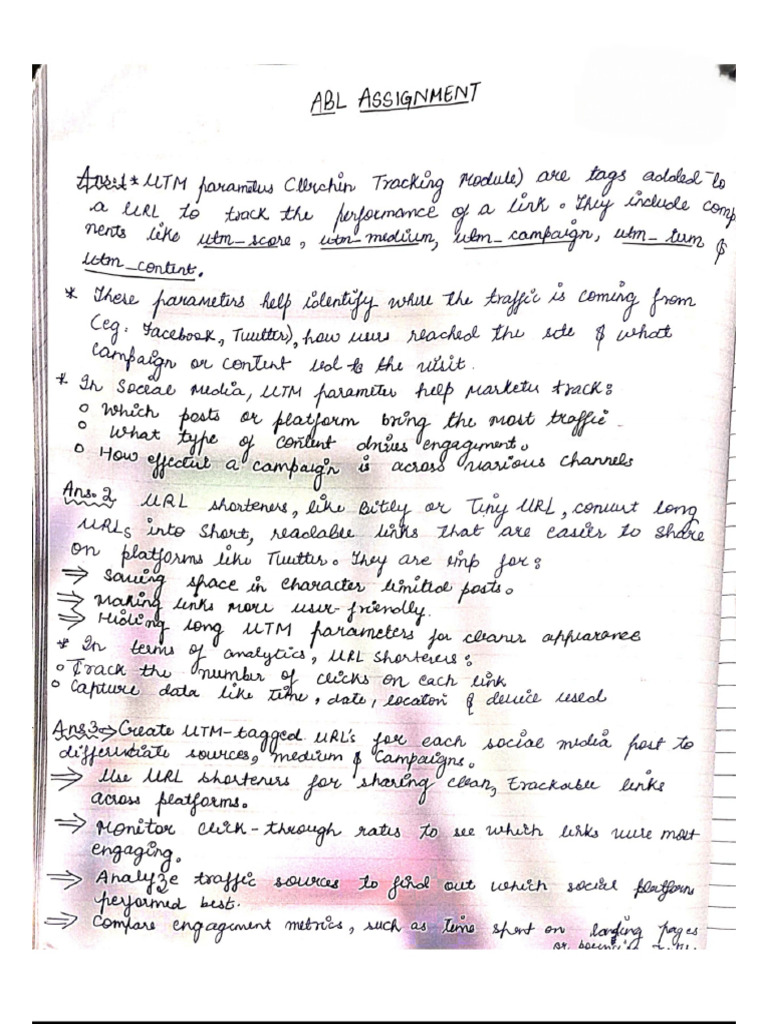 ABL ASSIGNMENT
Ans:1 * UTM parameters (Urchin Tracking Module) are tags added to
a URL to track the performance of a link. They include comp
nents like utm_score, utm_medium, utm_campaign, utm_term &
utm_content.
* These parameters help identify where the traffic is coming from
(eg: Facebook, Twitter), how users reached the site & what
campaign or content led to the visit.
* In Social Media, UTM parameter help marketer track:
o Which posts or platform bring the most traffic.
o What type of content drives engagement.
o How effective a campaign is across various channels
Ans.2 URL shorteners, like Bitly or Tiny URL, convert long
URLs into short, readable links that are easier to share
on platforms like Twitter. They are imp for:
⇒ Saving space in character limited posts.
⇒ Making links more user-friendly.
⇒ Hiding long UTM parameters for cleaner appearance
* In terms of analytics, URL shorteners:
o Track the number of clicks on each link
o Capture data like time, date, location & device used
Ans3⇒ Create UTM-tagged URL's for each social media post to
differentiate sources, medium & campaigns.
⇒ Use URL shorteners for sharing clean, trackable links
across platforms.
⇒ Monitor click-through rates to see which links were most
engaging.
⇒ Analyze traffic sources to find out which social platform
performed best.
⇒ Compare engagement metrics, such as time spent on landing pages
or